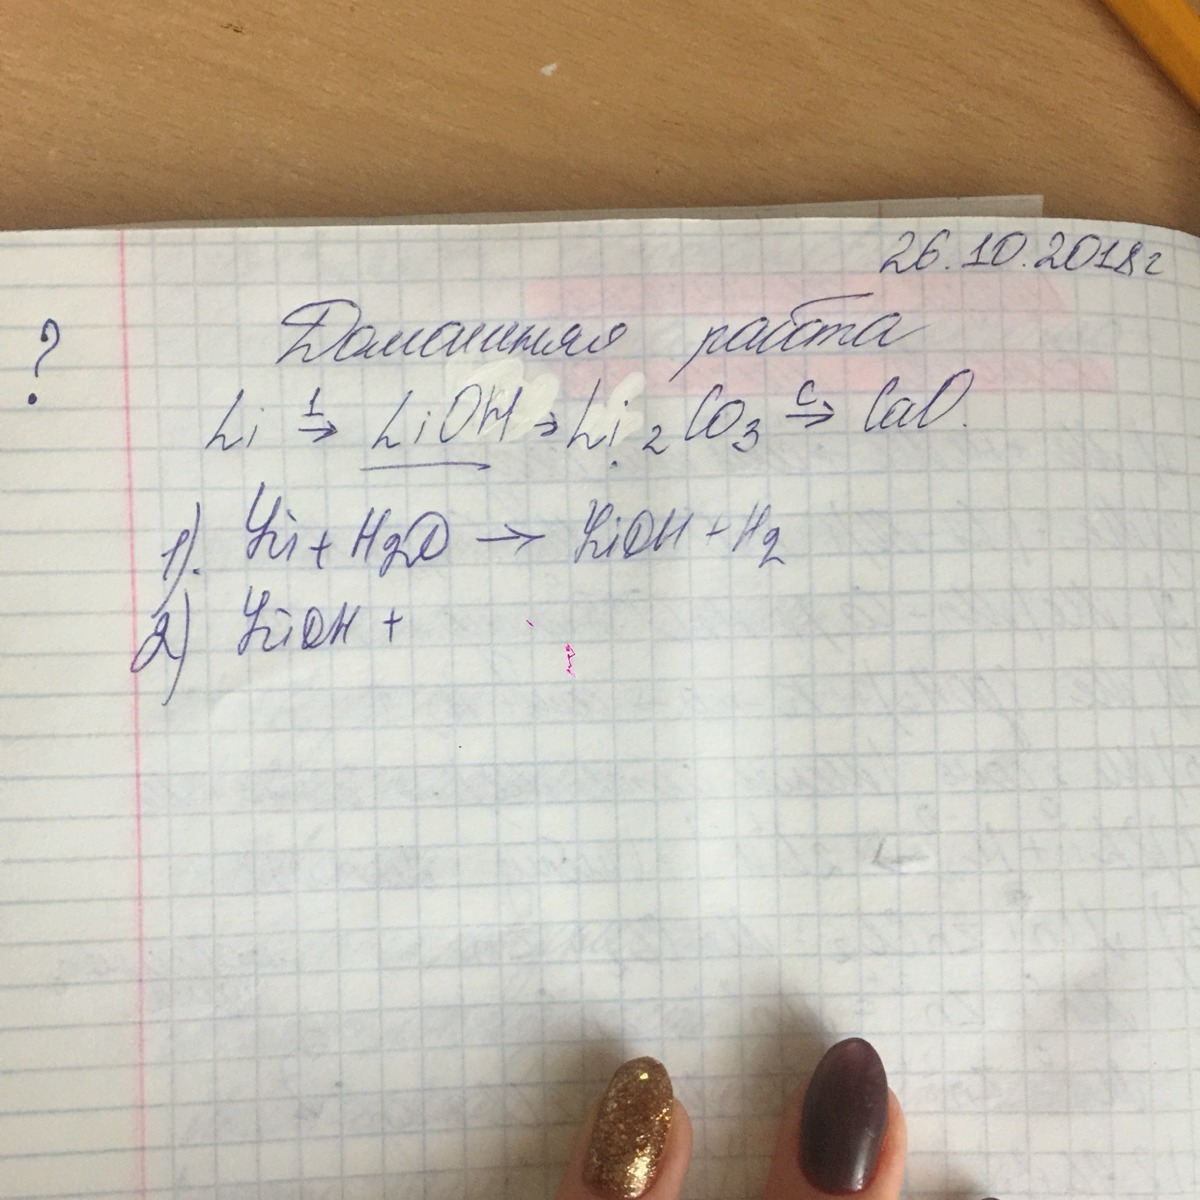 26.10.2018г
?
Домашняя работа
Li 1→ LiOH → Li2CO3 c→ CaO.
1). Li + H2O → LiOH + H2
2) LiOH +